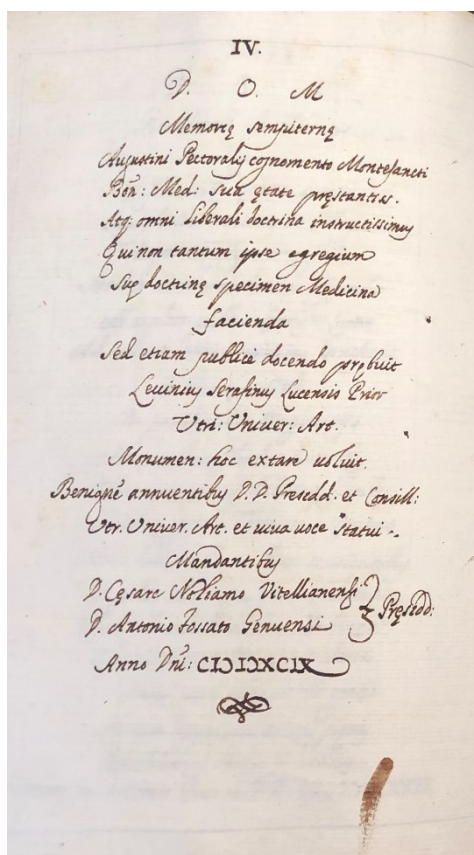 IV.
D. O. M
Memorię sempiternę
Augustini Pectoralis cognomento Montesancti
Bon̄: Med: sua ętate pręstantiss.
Atq; omni Liberali doctrina instructissimus
Qui non tantum ipse egregium
Suę doctrinę specimen Medicina
facienda
Sed etiam publicè docendo prębuit
Levinius Serafinus Lucensis Prior
Utri: Univer: Art.
Monumen: hoc extare voluit.
Benignè annuentibus D. D. Presedd. et Consill:
Utr. Univer. Art. et viva voce statui
Mandantibus
D. Cęsare Noliamo Vitellianensi
D. Antonio Fossato Genuensi } Pręsedd:
Anno Dn̄i: CIƆIƆXCIX